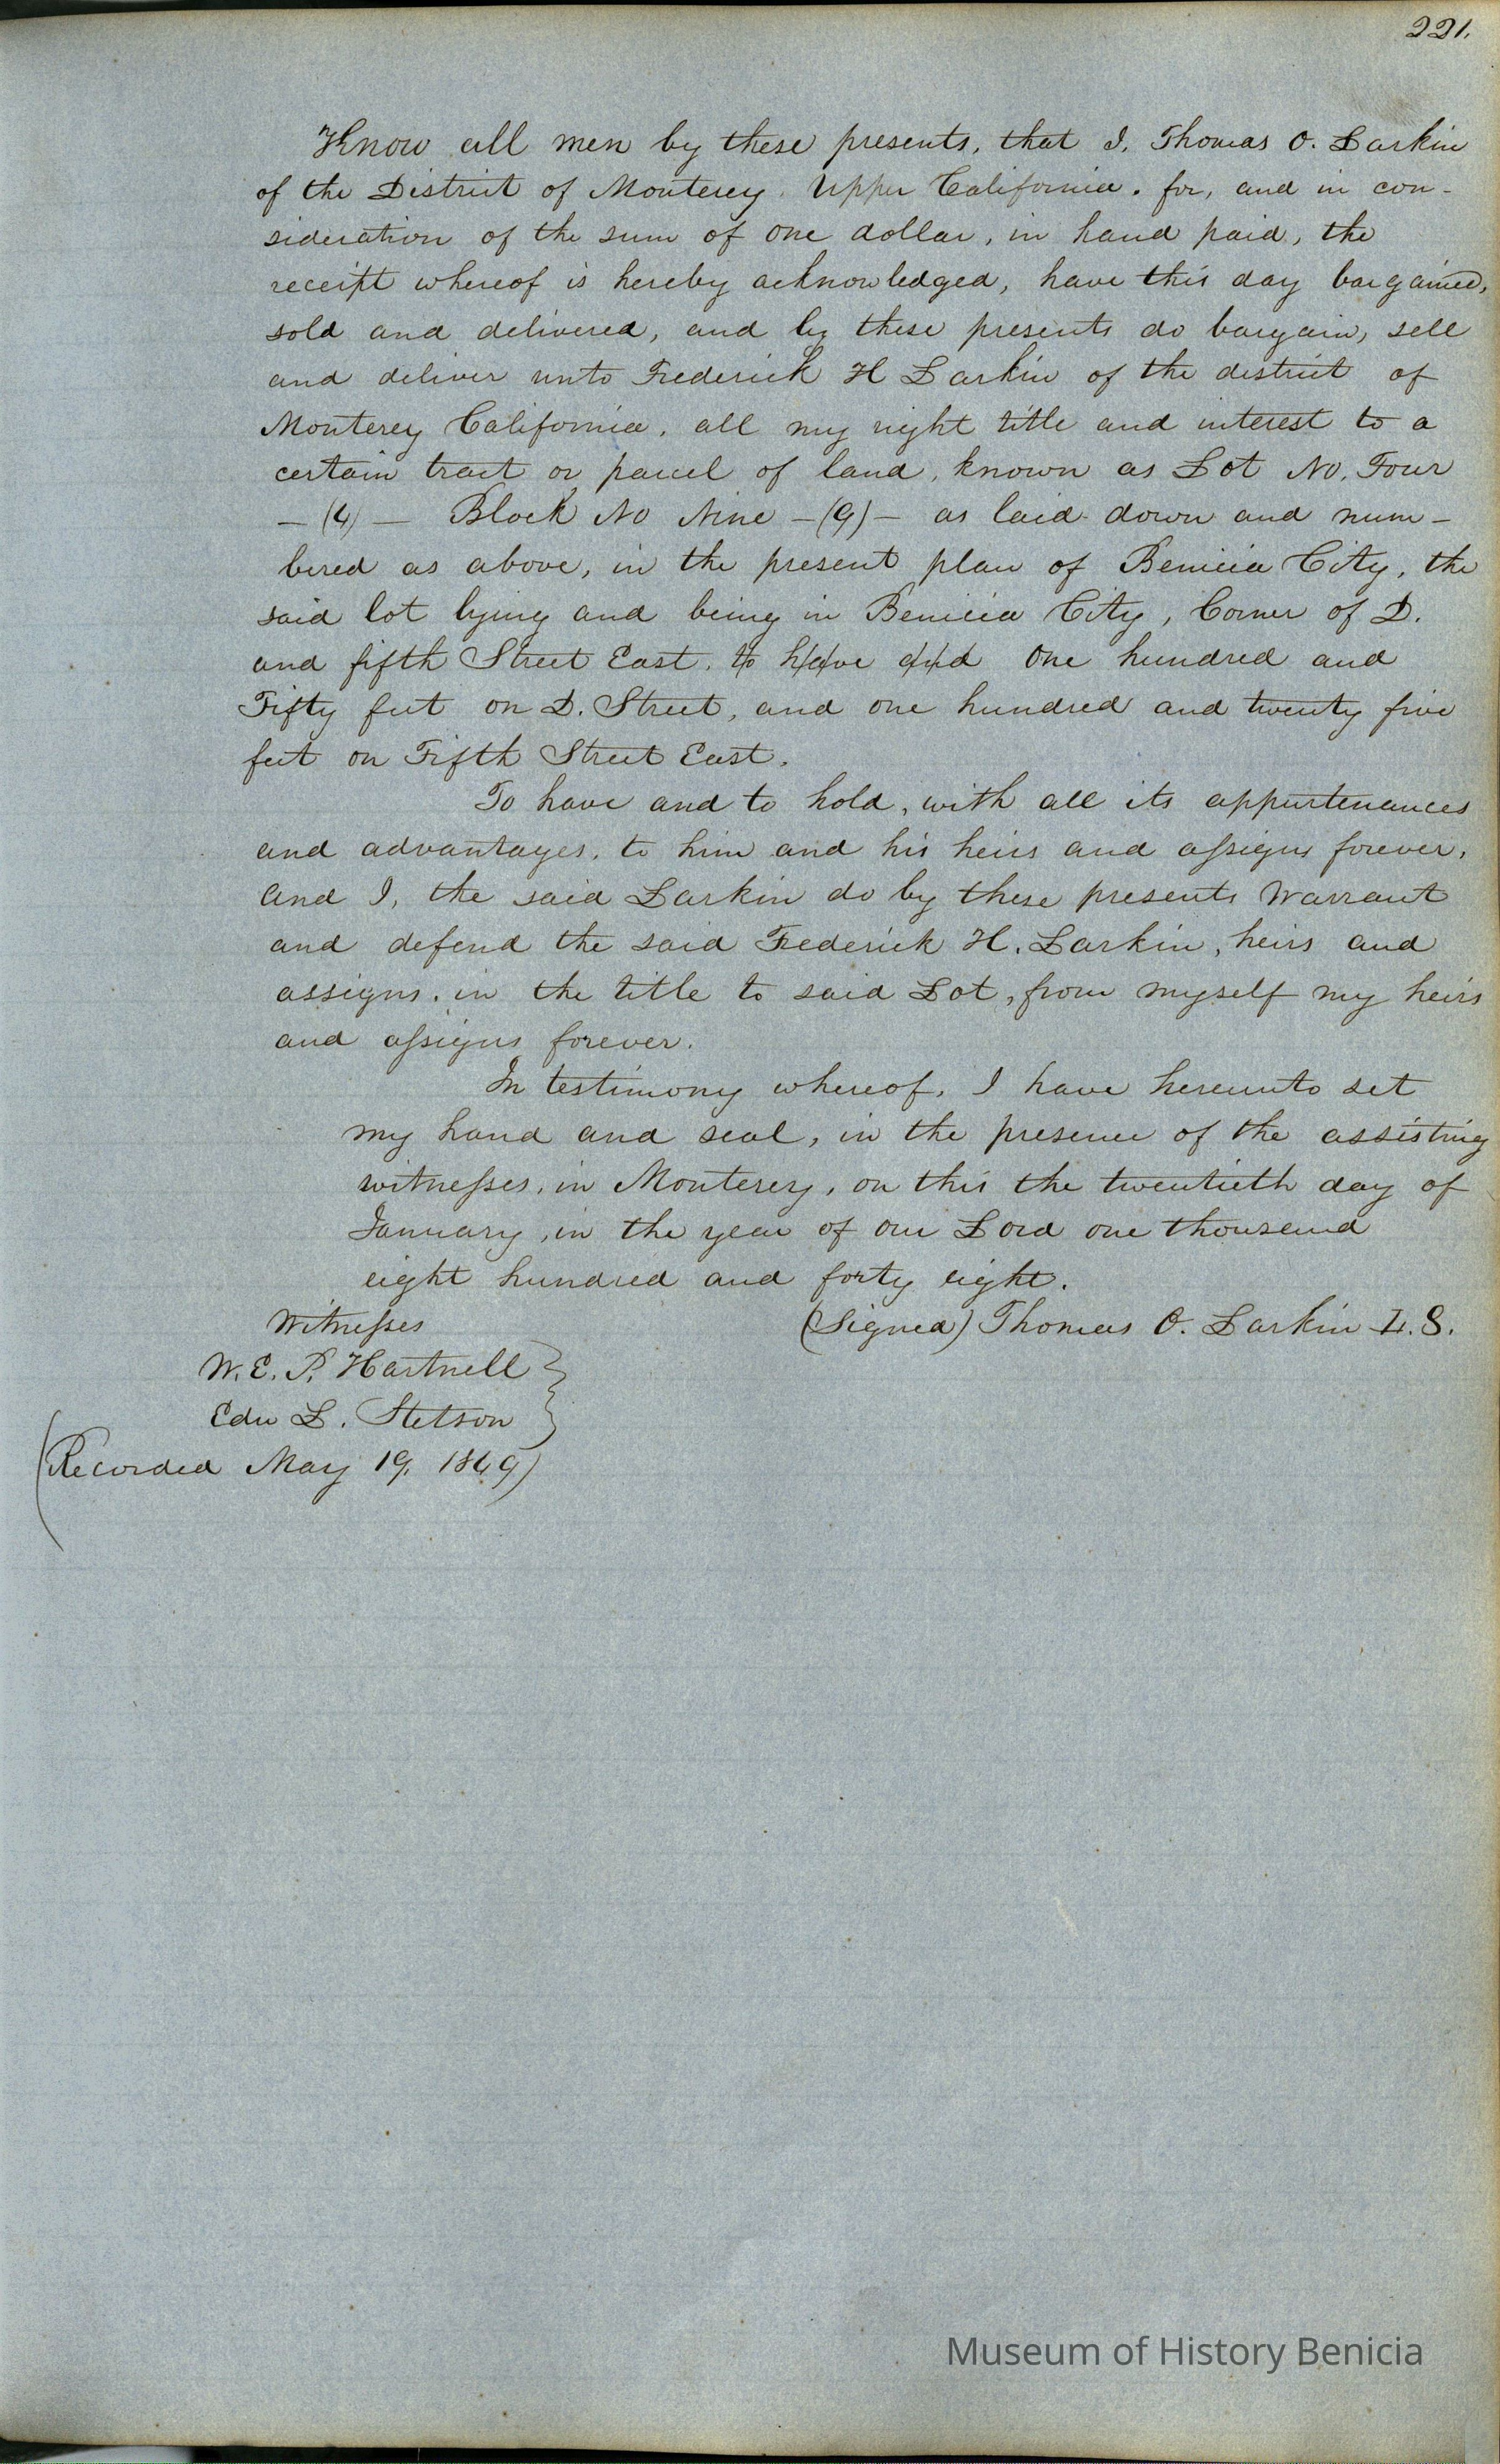 221.
Know all men by these presents, that I, Thomas O. Larkin
of the District of Monterey. Upper California. for, and in con-
sideration of the sum of one dollar, in hand paid, the
receipt whereof is hereby acknowledged, have this day bargained,
sold and delivered, and by these presents do bargain, sell
and deliver unto Frederick H Larkin of the district of
Monterey California, all my right title and interest to a
certain tract or parcel of land, known as Lot No. Four
— (4) — Block No Nine — (9) — as laid down and num-
bered as above, in the present plan of Benicia City, the
said lot lying and being in Benicia City, Corner of D.
and fifth Street East. to have and One hundred and
Fifty feet on D. Street, and one hundred and twenty five
feet on Fifth Street East.
To have and to hold, with all its appurtenances
and advantages, to him and his heirs and assigns forever,
And I, the said Larkin do by these presents Warrant
and defend the said Frederick H. Larkin, heirs and
assigns. in the title to said Lot, from myself my heirs
and assigns forever.
In testimony whereof, I have hereunto set
my hand and seal, in the presence of the assisting
witnesses, in Monterey, on this the twentieth day of
January, in the year of our Lord one thousand
eight hundred and forty eight.
Witnesses (Signed) Thomas O. Larkin L.S.
W. E. P. Hartnell
Edw L. Stetson
(Recorded May 19, 1849)
Museum of History Benicia